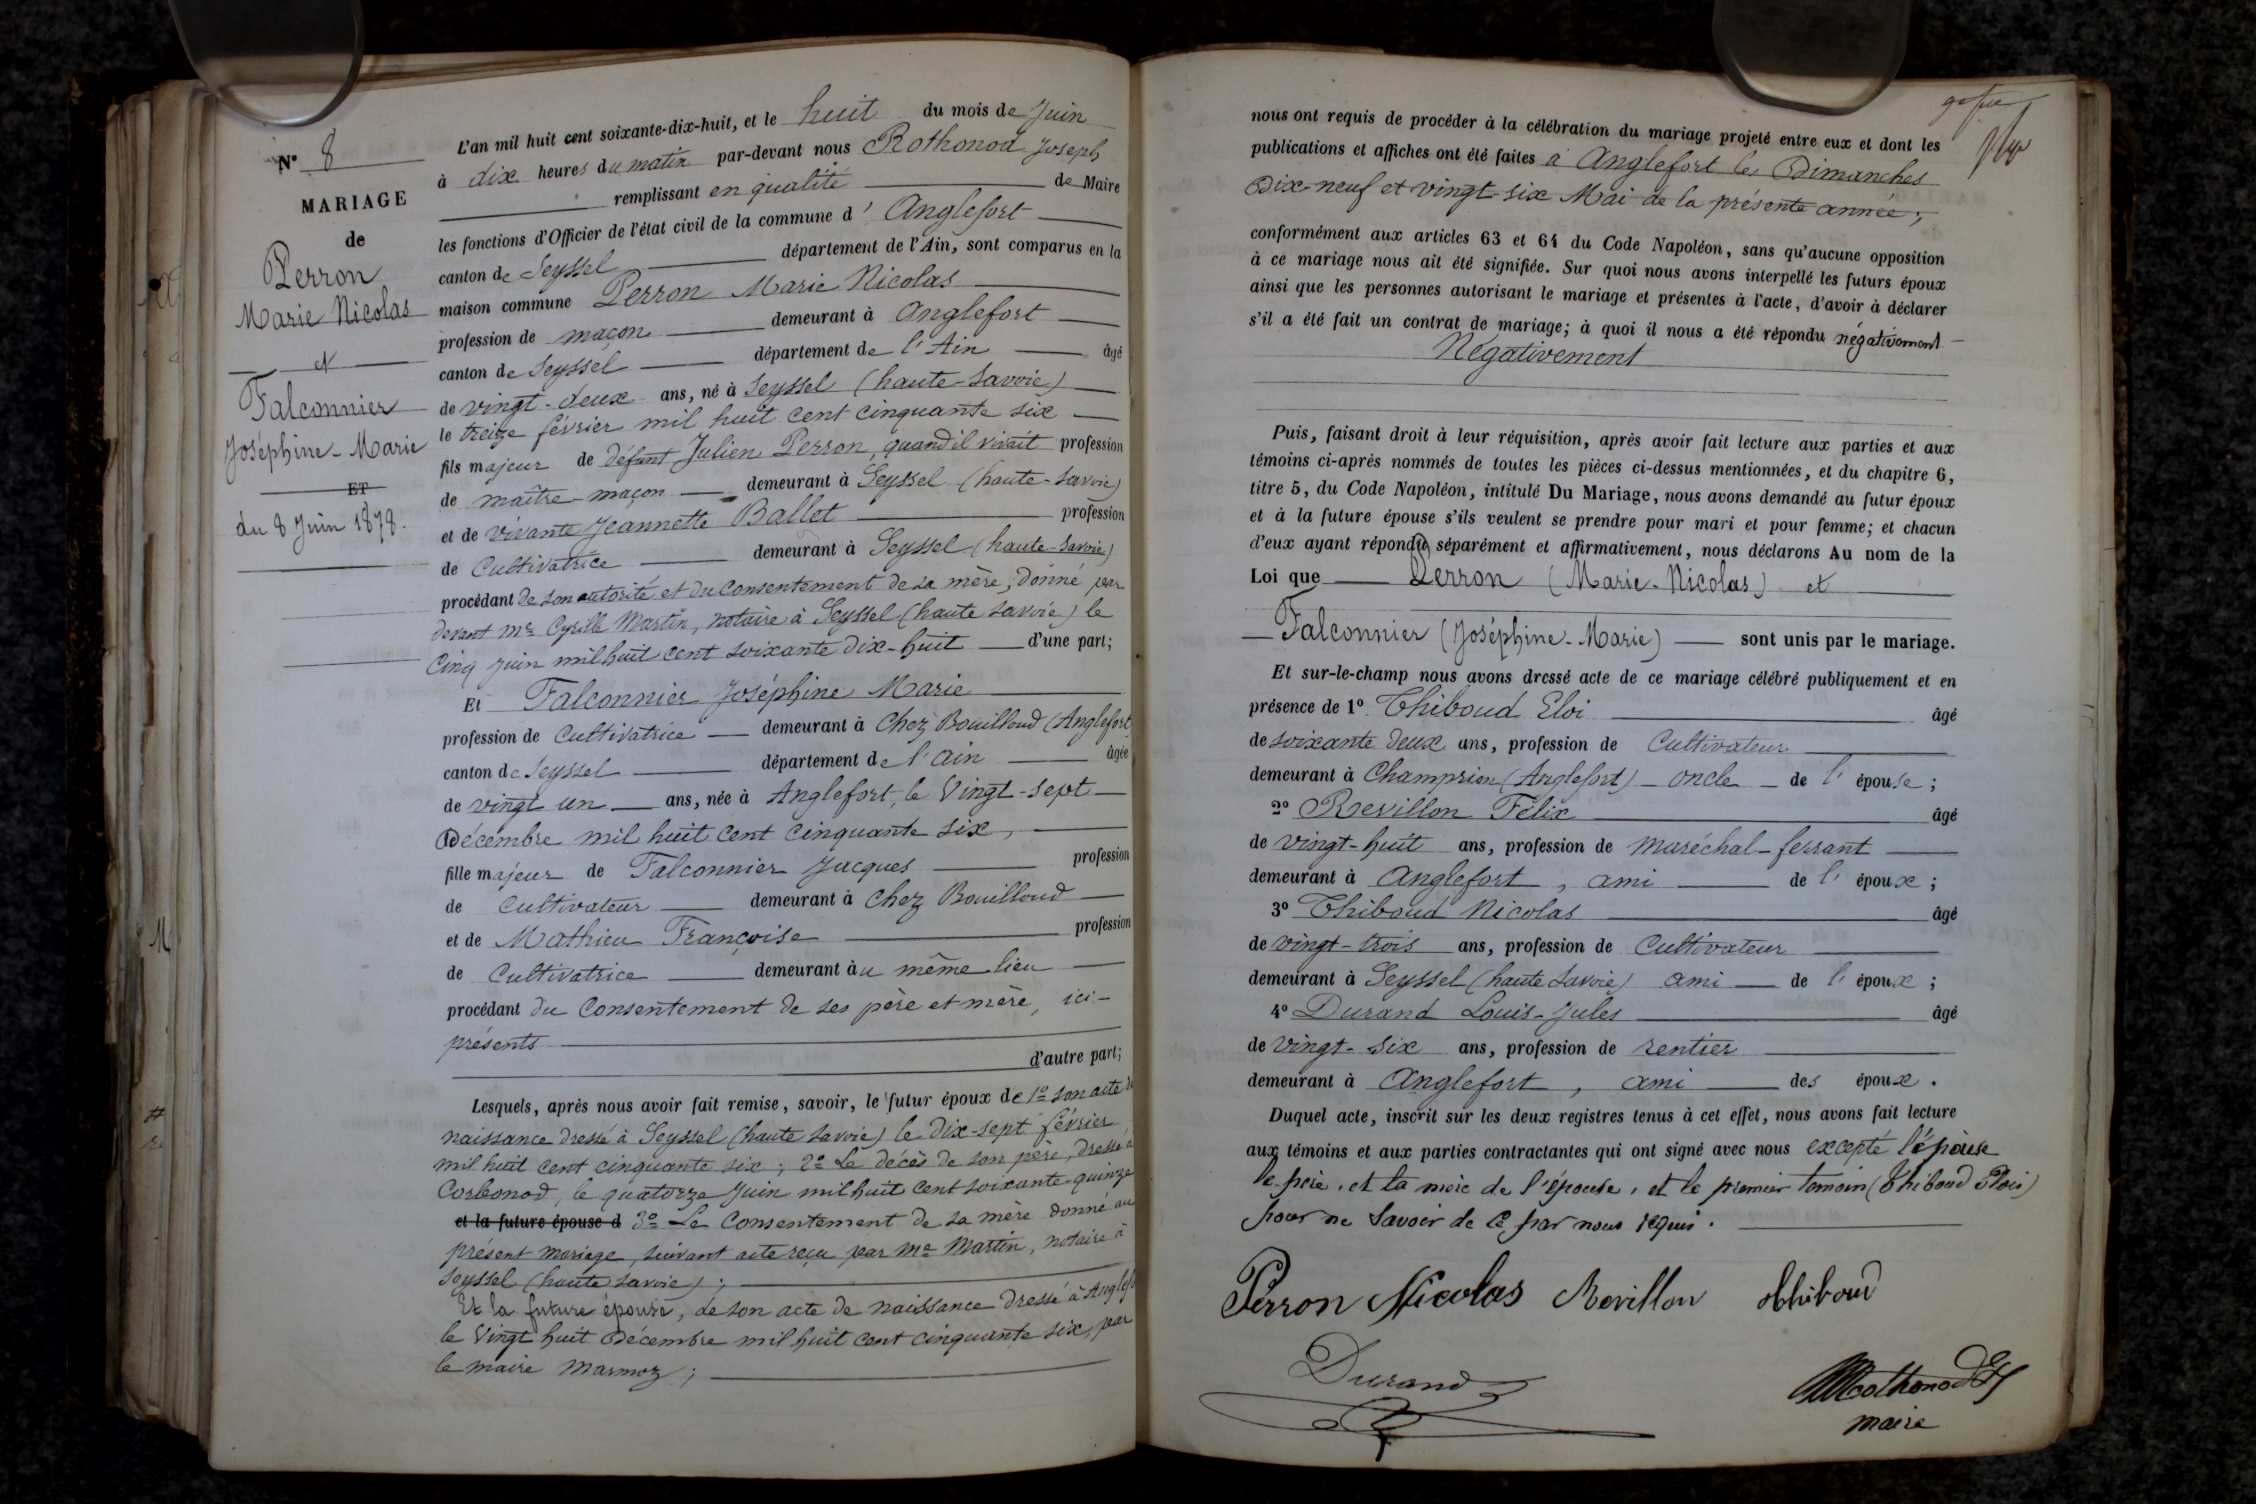 N° 8
MARIAGE
de
Perron
Marie Nicolas
et
Falconnier
Joséphine-Marie
ET
du 8 Juin 1878.
L'an mil huit cent soixante-dix-huit, et le huit du mois de Juin
à dix heures du matin par-devant nous Rothonod Joseph
remplissant en qualité de Maire
les fonctions d'Officier de l'état civil de la commune d' Anglefort
canton de Seyssel département de l'Ain, sont comparus en la
maison commune Perron Marie Nicolas
profession de maçon demeurant à Anglefort
canton de Seyssel département de l'Ain âgé
de vingt-deux ans, né à Seyssel (haute-Savoie)
le treize février mil huit cent cinquante six
fils majeur de défunt Julien Perron, quand il vivait profession
de maître-maçon demeurant à Seyssel (haute-Savoie)
et de vivante Jeannette Ballet profession
de Cultivatrice demeurant à Seyssel (haute-Savoie)
procédant de son autorité et du Consentement de sa mère, donné par
devant me Cyrille Martin, notaire à Seyssel (haute Savoie) le
Cinq juin mil huit cent soixante dix-huit d'une part;
Et Falconnier Joséphine Marie
profession de Cultivatrice demeurant à Chez Bouilloud (Anglefort
canton de Seyssel département de l'Ain âgée
de vingt un ans, née à Anglefort, le Vingt-sept
Décembre mil huit cent cinquante six,
fille majeur de Falconnier Jacques profession
de Cultivateur demeurant à Chez Bouilloud
et de Mathieu Françoise profession
de Cultivatrice demeurant àu même lieu
procédant du Consentement de ses père et mère, ici-
présents
d'autre part;
Lesquels, après nous avoir fait remise, savoir, le futur époux de 1° son acte de
naissance dressé à Seyssel (haute Savoie) le dix-sept février
mil huit cent cinquante six; 2° Le décès de son père, dressé à
Corbonod, le quatorze Juin mil huit cent soixante-quinze
et la future épouse d 3° Le Consentement de sa mère donné au
présent mariage, suivant acte reçu par me Martin, notaire à
Seyssel (haute Savoie);
Et la future épouse, de son acte de naissance dressé à Anglef
le Vingt huit Décembre mil huit cent cinquante six, par
le maire Marmoz;
nous ont requis de procéder à la célébration du mariage projeté entre eux et dont les
publications et affiches ont été faites à Anglefort les Dimanches
Dix-neuf et vingt-six Mai de la présente année;
conformément aux articles 63 et 64 du Code Napoléon, sans qu'aucune opposition
à ce mariage nous ait été signifiée. Sur quoi nous avons interpellé les futurs époux
ainsi que les personnes autorisant le mariage et présentes à l'acte, d'avoir à déclarer
s'il a été fait un contrat de mariage; à quoi il nous a été répondu négativement
Négativement
Puis, faisant droit à leur réquisition, après avoir fait lecture aux parties et aux
témoins ci-après nommés de toutes les pièces ci-dessus mentionnées, et du chapitre 6,
titre 5, du Code Napoléon, intitulé Du Mariage, nous avons demandé au futur époux
et à la future épouse s'ils veulent se prendre pour mari et pour femme; et chacun
d'eux ayant répondu séparément et affirmativement, nous déclarons Au nom de la
Loi que Perron (Marie-Nicolas) et
Falconnier (Joséphine-Marie) sont unis par le mariage.
Et sur-le-champ nous avons dressé acte de ce mariage célébré publiquement et en
présence de 1° Thiboud Eloi âgé
de soixante deux ans, profession de Cultivateur
demeurant à Champrion (Anglefort) - oncle - de l' épouse;
2° Revillon Félix âgé
de vingt-huit ans, profession de maréchal-ferrant
demeurant à Anglefort, ami de l' époux;
3° Thiboud Nicolas âgé
de vingt-trois ans, profession de Cultivateur
demeurant à Seyssel (haute Savoie) ami de l' époux;
4° Durand Louis-Jules âgé
de vingt-six ans, profession de rentier
demeurant à Anglefort, ami des époux.
Duquel acte, inscrit sur les deux registres tenus à cet effet, nous avons fait lecture
aux témoins et aux parties contractantes qui ont signé avec nous excepté l'épouse
le père, et la mère de l'épouse, et le premier temoin (Thiboud Eloi)
pour ne Savoir de ce par nous requis.
Perron Nicolas Revillon Thiboud
Durand
Rothonod
maire